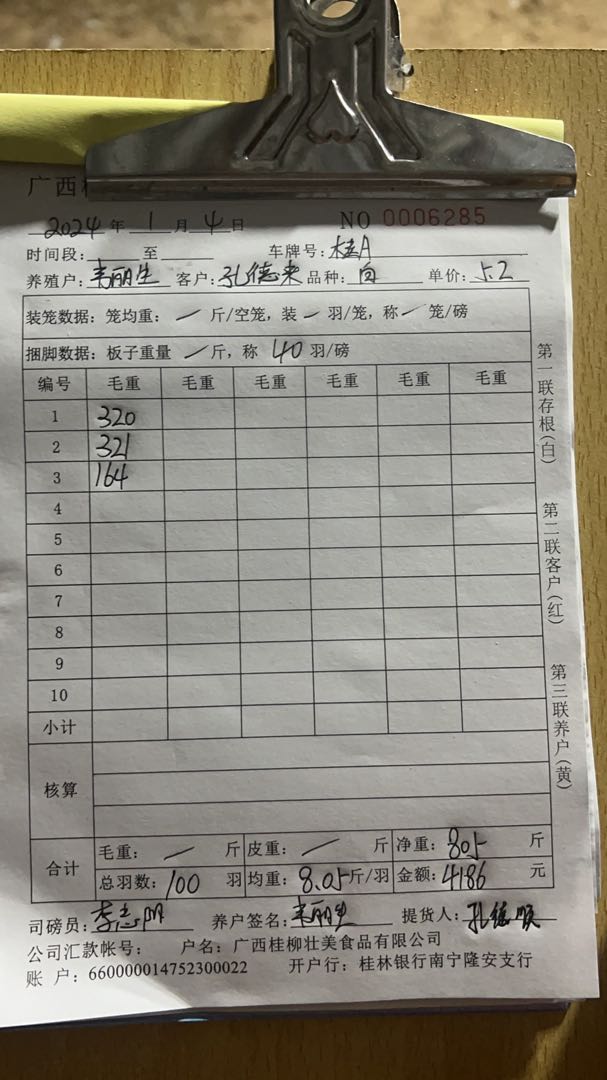 广西桂
2024年 1月 4日 NO 0006285
时间段: 至 车牌号: 桂A
养殖户: 韦丽生 客户: 孔德来 品种: 白 单价: 5.2
装笼数据: 笼均重: / 斤/空笼, 装 / 羽/笼, 称 / 笼/磅
捆脚数据: 板子重量 / 斤, 称 40 羽/磅
编号 毛重 毛重 毛重 毛重 毛重 毛重
1 320
2 321
3 164
4
5
6
7
8
9
10
小计
核算
合计 毛重: / 斤 皮重: / 斤 净重: 805 斤
总羽数: 100 羽 均重: 8.05 斤/羽 金额: 4186 元
司磅员: 李志 养户签名: 韦丽生 提货人: 孔德顺
公司汇款帐号: 户名: 广西桂柳壮美食品有限公司
账 户: 660000014752300022 开户行: 桂林银行南宁隆安支行
第一联存根(白)
第二联客户(红)
第三联养户(黄)